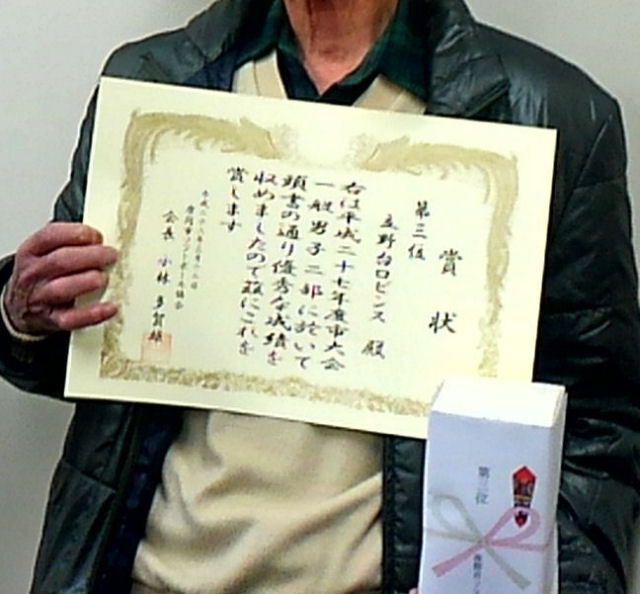 賞状
第三位
立野台ロビンス 殿
右は平成二十七年度市大会
一般男子二部に於いて
頭書の通り優秀な成績を
収めましたので茲にこれを
賞します
会長 小林多賀雄
第三位